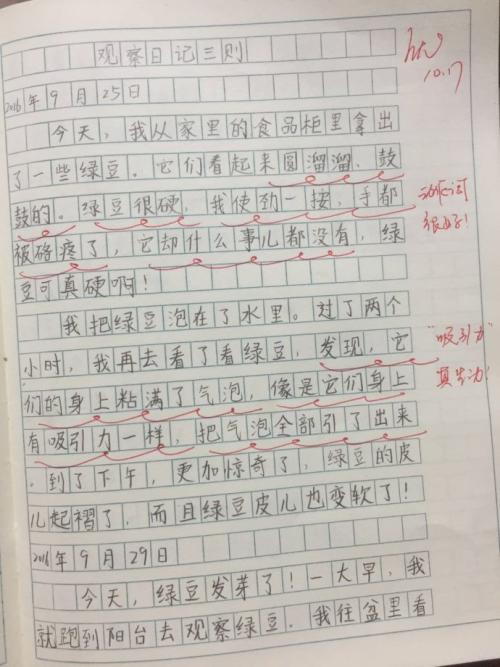 观察日记三则
10.17
2016年9月25日
今天，我从家里的食品柜里拿出
了一些绿豆。它们看起来圆溜溜、鼓
鼓的。绿豆很硬，我使劲一按，手都
动作词
被硌疼了，它却什么事儿都没有，绿
很好！
豆可真硬啊！
我把绿豆泡在了水里。过了两个
小时，我再去看了看绿豆，发现，它
"吸引力"
们的身上粘满了气泡，像是它们身上
真生动！
有吸引力一样，把气泡全部引了出来
．到了下午，更加惊奇了，绿豆的皮
儿起褶了，而且绿豆皮儿也变软了！
2016年9月29日
今天，绿豆发芽了！一大早，我
就跑到阳台去观察绿豆．我往盆里看